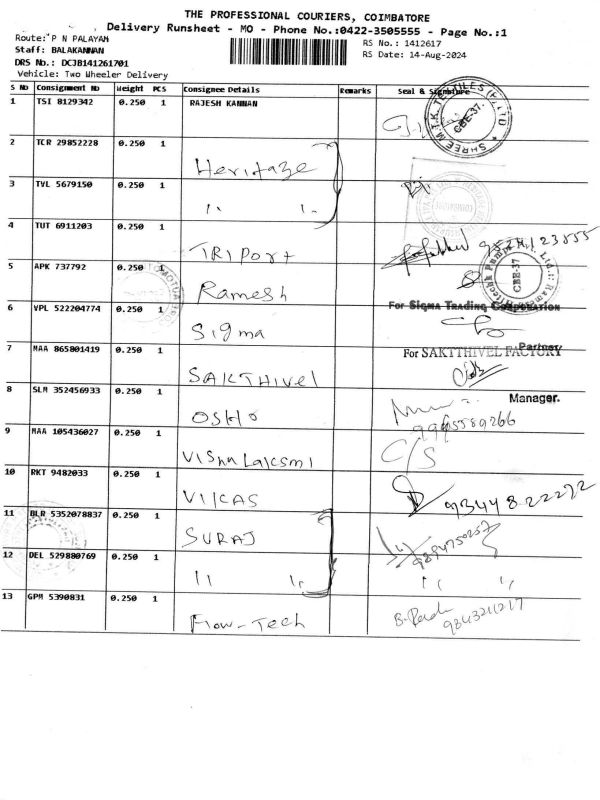 THE PROFESSIONAL COURIERS, COIMBATORE
Delivery Runsheet - MO - Phone No.:0422-3505555 - Page No.:1
Route: P N PALAYAM
RS No.: 1412617
Staff: BALAKANNAN
RS Date: 14-Aug-2024
DRS No.: DCJB141261701
Vehicle: Two Wheeler Delivery
S No Consignment No Weight PCS Consignee Details Remarks Seal & Signature
1 TSI 8129342 0.250 1 RAJESH KANNAN
SHREE M.T.K. TEXTILES (P) LTD CBE-37.
2 TCR 29852228 0.250 1 Heritage
3 TVL 5679150 0.250 1 " "
4 TUT 6911203 0.250 1 TRIPORT
5 APK 737792 0.250 1 Ramesh
CBE-37
For SIGMA TRADING CORPORATION
6 VPL 522204774 0.250 1 Sigma
Partner
For SAKTTHIVEL FACTORY
7 MAA 865801419 0.250 1 SAKTHIVEL
Manager.
8 SLM 352456933 0.250 1 OSHO
9965589266
9 MAA 105436027 0.250 1 Vishnu Laksmi C/S
10 RKT 9482033 0.250 1 VIKAS 9344822272
11 BLR 5352078837 0.250 1 SURAJ 9894750257
12 DEL 529880769 0.250 1 " " " "
13 GPM 5390831 0.250 1 Flow-Tech 9843211217